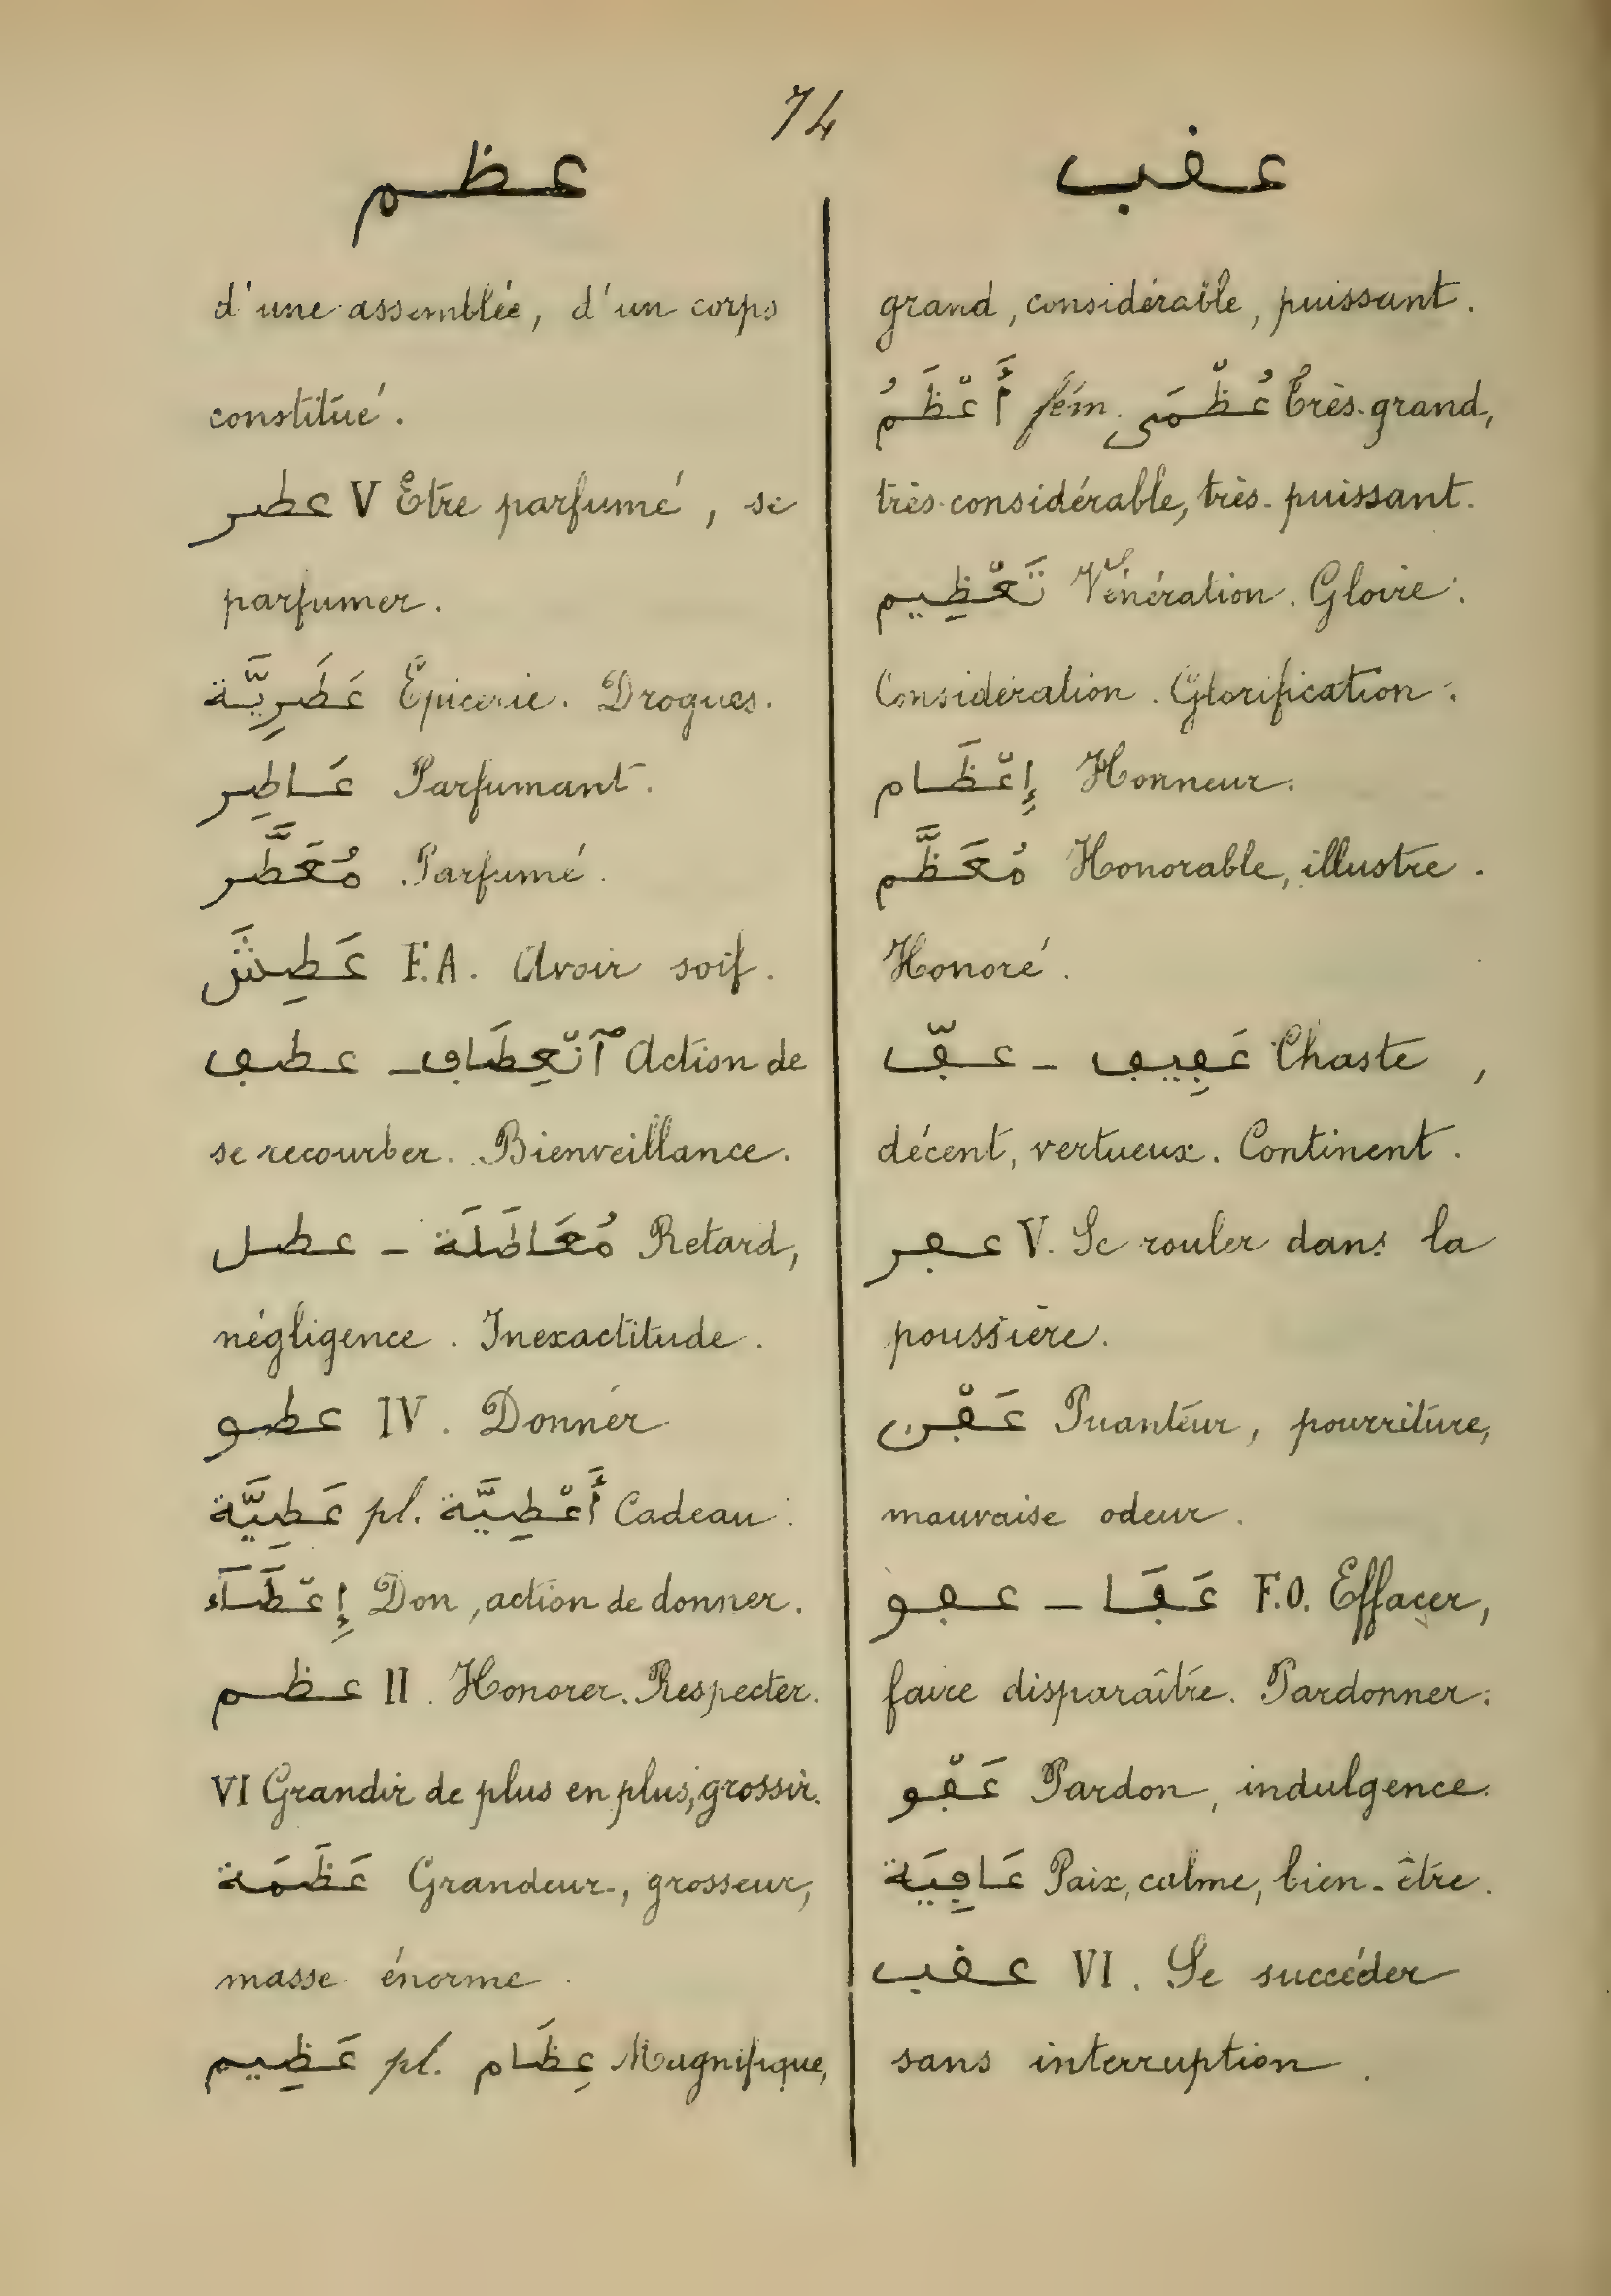 74
عظم
d'une assemblée, d'un corps
constitué.
عطر V Etre parfumé, se
parfumer.
عَطَرِيَّة Epicerie. Drogues.
عَاطِر Parfumant.
مُعَطَّر Parfumé.
عَطِشَ F.A. Avoir soif.
عطف – ٱنْعِطَاف Action de
se recourber. Bienveillance.
عطل – مُعَاطَلَة Retard,
négligence. Inexactitude.
عطو IV. Donner
عَطِيَّة pl. أَعْطِيَّة Cadeau.
إِعْطَآء Don, action de donner.
عظم II. Honorer. Respecter.
VI Grandir de plus en plus, grossir.
عَظَمَة Grandeur, grosseur,
masse énorme.
عَظِيم pl. عِظَام Magnifique,
عقب
grand, considérable, puissant.
أَعْظَمُ fém. عُظْمَى Très-grand,
très-considérable, très-puissant.
تَعْظِيم Vénération. Gloire.
Considération. Glorification.
إِعْظَام Honneur.
مُعَظَّم Honorable, illustre.
Honoré.
عفّ – عَفِيف Chaste,
décent, vertueux. Continent.
عفر V. Se rouler dans la
poussière.
عَفْن Puanteur, pourriture,
mauvaise odeur.
عفو – عَفَا F.O. Effacer,
faire disparaître. Pardonner.
عَفْو Pardon, indulgence.
عَافِيَة Paix, calme, bien-être.
عقب VI. Se succéder
sans interruption.